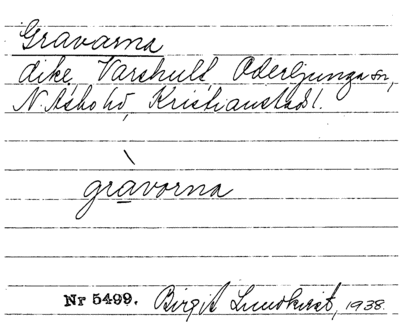 Gravarna
dike, Varshult, Oderljunga sn,
N. Åsbo hd, Kristianstads l.
gràvorna
Nr 5499. Birgit Lundkvist, 1938.